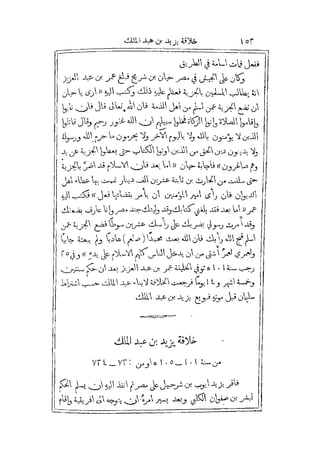 ١٥٣ خلافة يزيد بن عبد الملك
ففعل فمات اسامة في الطريق
وكان على الجيش في مصر حيان بن شريح فبلغ عمر بن عبد العزيز
انه يطالب المسلمين بالجزية فعظم عليه ذلك وكتب اليه « ارى يا حيان
ان تضع الجزية عمن اسلم من اهل الذمة فان الله تعالى قال فان تابوا
واقاموا الصلاة وآتوا الزكاة فخلوا سبيلهم ان الله غفور رحيم وقال قاتلوا
الذين لا يؤمنون بالله ولا باليوم الآخر ولا يحرمون ما حرم الله ورسوله
ولا يدينون دين الحق من الذين اوتوا الكتاب حتى يعطوا الجزية عن يد
وهم صاغرون » فاجابه حيان « اما بعد فان الاسلام قد اضر بالجزية
حتى سلفت من الحارث بن ثابتة عشرين الف دينار تممت بها عطاء اهل
الديوان فان رأى امير المؤمنين ان يأمر بقضائها فعل » فكتب اليه
عمر « اما بعد فقد بلغني كتابك وقد وليتك جند مصر وانا عارف بضعفك
وقد أمرت رسولي بضربك على رأسك عشرين سوطًا فضع الجزية عن
اسلم قبح الله رأيك فان الله بعث محمدًا ( صلعم ) هاديًا ولم يبعثه جابيًا
ولعمري لعمر أشقى من ان يدخل الناس كلهم الاسلام على يديه » وفي ٢٥
رجب سنة ١٠١ ه‍ توفي الخليفة عمر بن عبد العزيز بعد ان حكم سنتين
وخمسة اشهر و ١٤ يومًا فرجعت الخلافة لابناء عبد الملك حسب اشتراط
سليمان قبل موته فبويع يزيد بن عبد الملك
خلافة يزيد بن عبد الملك
من سنة ١٠١ — ١٠٥ ه‍ او من ٧٢٠ — ٧٢٤
فاقر يزيد ايوب بن شرحبيل على مصر ثم انفذ اليه ان يسلم الحكم
لبشر بن صفوان الكلبي وبعد يسير امره ان يتوجه الى افريقية واقام